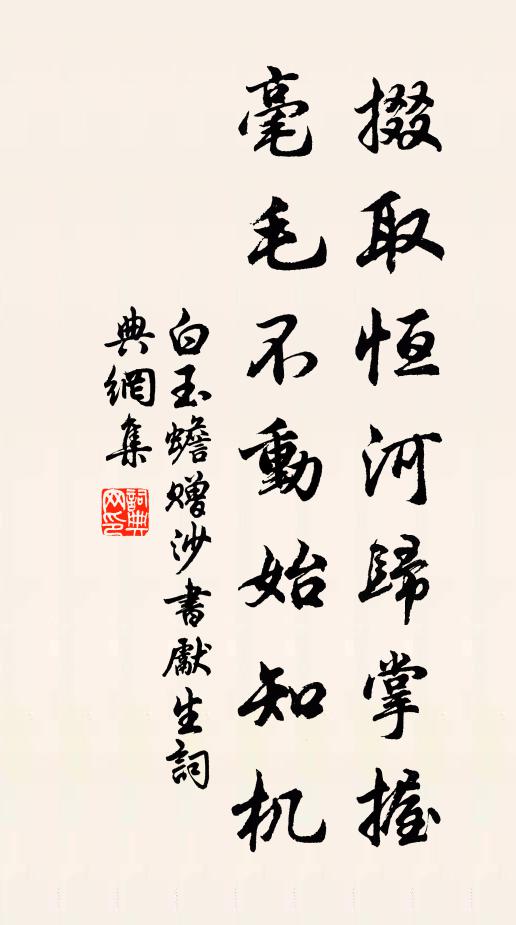 掇取恒河歸掌握
毫毛不動始知机
白玉蟾贈沙書獻生詞
典網集
詞典網印